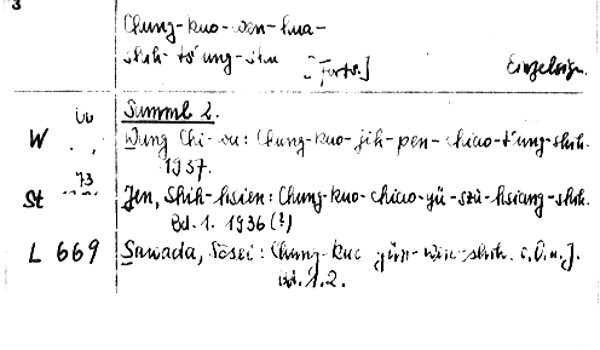 3
Chung-kuo-wen-hua-
shih-ts'ung-shu [Forts.] Einzelsign.
Samml 2.
W Wang Chi-wu: Chung-kuo-jih-pen-chiao-t'ung-shih.
1937.
73
St Jen, Shih-hsien: Chung-kuo-chiao-yü-szu-hsiang-shih.
Bd. 1. 1936(?)
L 669 Sawada, Sōsei: Chung-kuo yün-wen-shih. o.O.u.J.
Bd. 1.2.